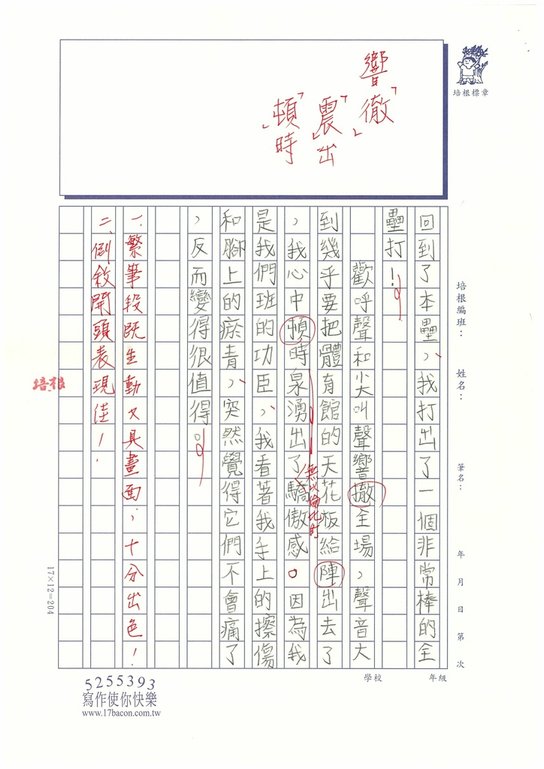 響徹
震出
頓時
培根標章
回到了本壘，我打出了一個非常棒的全
壘打！
歡呼聲和尖叫聲響撤全場，聲音大
到幾乎要把體育館的天花板給陣出去了
，我心中頓時泉湧出了驕傲感。因為我
無以倫比的
是我們班的功臣，我看著我手上的擦傷
和腳上的瘀青，突然覺得它們不會痛了
，反而變得很值得。
一、繁筆段既生動又具畫面，十分出色！
二、倒敘開頭表現佳！
培根
培根編班：
姓名：
筆名：
年 月 日 第 次
學校 年級
17×12=204
5255393
寫作使你快樂
www.17bacon.com.tw